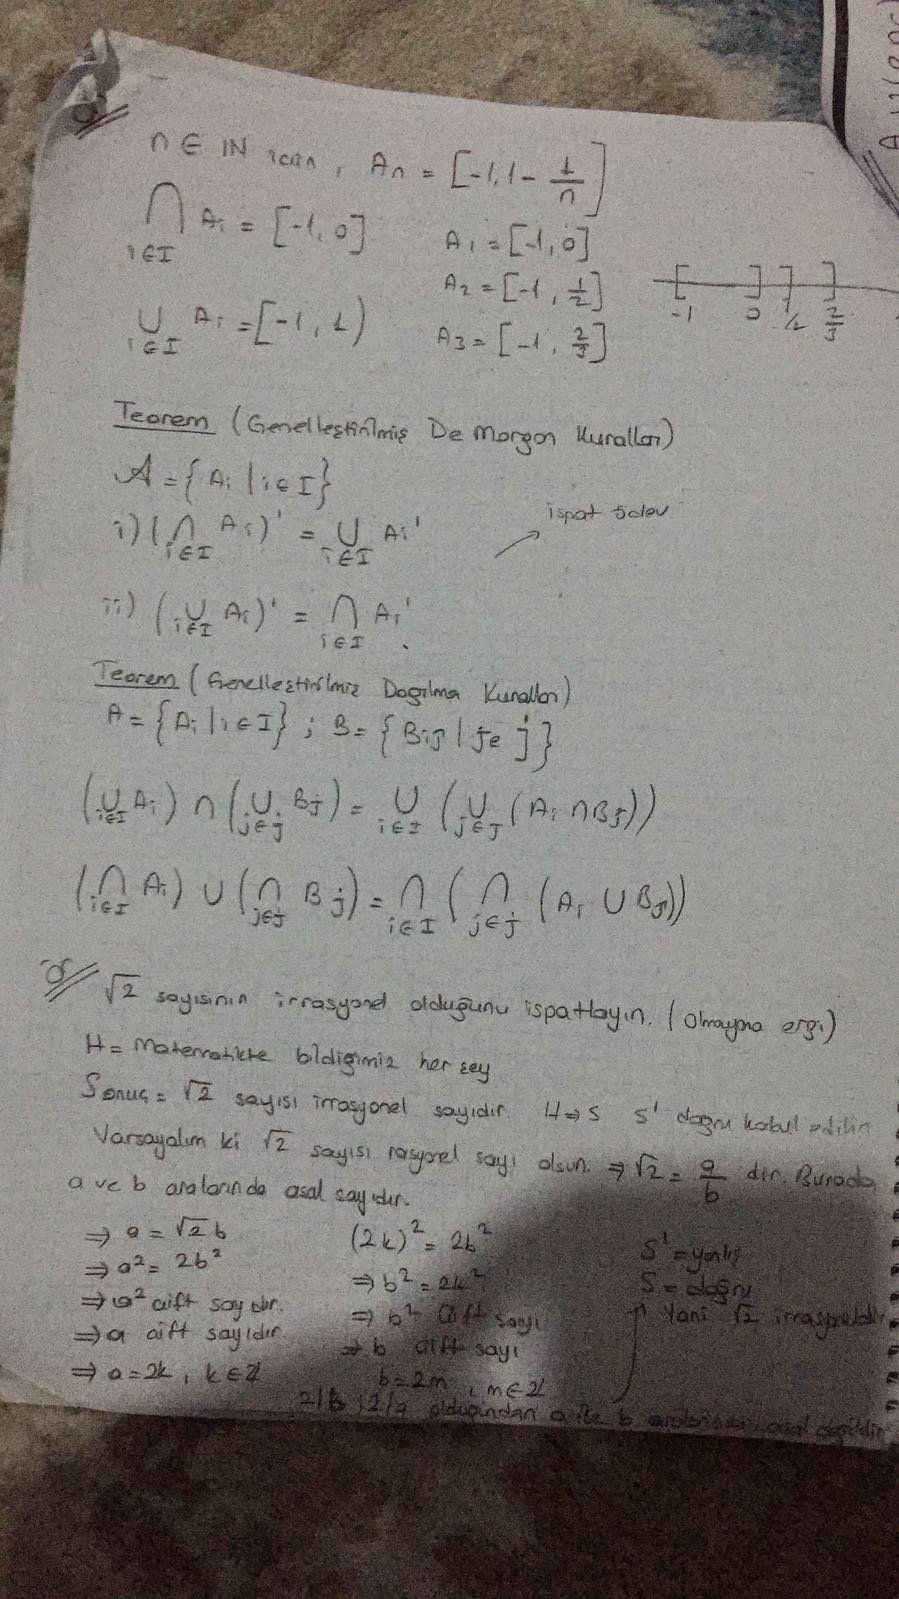 Ör//
n ∈ IN için, An = [-1, 1 - 1/n]
∩ i∈I Ai = [-1, 0]
A1 = [-1, 0]
A2 = [-1, 1/2]
-1 0 1/2 2/3
∪ i∈I Ai = [-1, 1)
A3 = [-1, 2/3]
Teorem (Genelleştirilmiş De Morgan Kuralları)
A = {Ai | i∈I}
i) (∩ i∈I Ai)' = ∪ i∈I Ai'
ispat ödev
ii) (∪ i∈I Ai)' = ∩ i∈I Ai'
Teorem (Genelleştirilmiş Dağılma Kuralları)
A = {Ai | i∈I} ; B = {Bij | j∈j}
(∪ i∈I Ai) ∩ (∪ j∈j Bj) = ∪ i∈I (∪ j∈J (Ai ∩ Bj))
(∩ i∈I Ai) ∪ (∩ j∈j Bj) = ∩ i∈I (∩ j∈j (Ai ∪ Bj))
Ör// √2 sayısının irrasyonel olduğunu ispatlayın. (Olmayana ergi)
H = Matematikte bildiğimiz her şey
Sonuç = √2 sayısı irrasyonel sayıdır H⇒S S' doğru kabul edilir
Varsayalım ki √2 sayısı rasyonel sayı olsun. ⇒ √2 = a/b dir. Burada
a ve b aralarında asal sayıdır.
⇒ a = √2 b
⇒ a² = 2b²
⇒ a² çift sayıdır.
⇒ a çift sayıdır
⇒ a = 2k, k ∈ Z
(2k)² = 2b²
⇒ b² = 2k²
⇒ b² çift sayı
⇒ b çift sayı
b = 2m, m ∈ Z
S' = yanlış
S = doğru
Yani √2 irrasyoneldir
2/b, 2/a olduğundan a ile b aralarında asal değildir